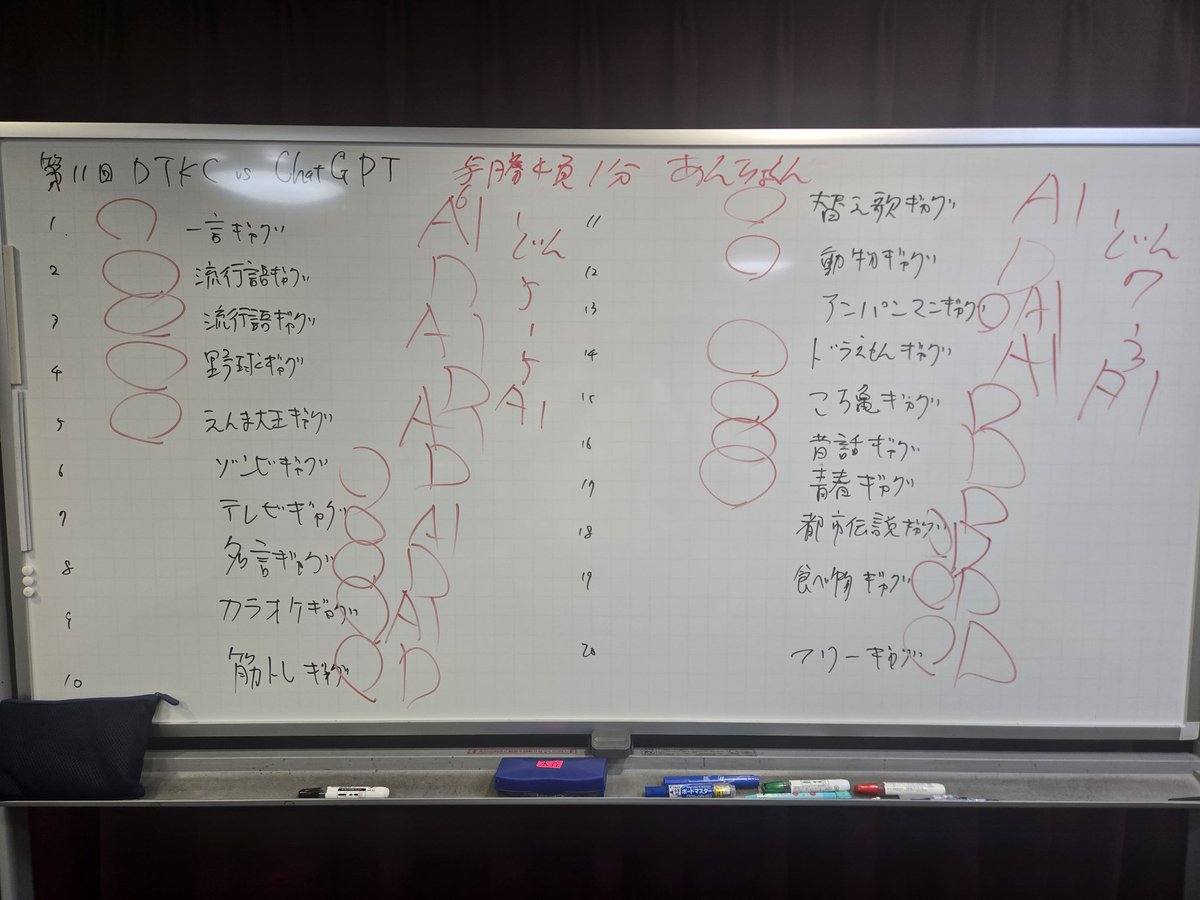 第11回 DTKC vs ChatGPT 1分
1. 一言ギャグ AI どん
2 流行語ギャグ D 5
3 流行語ギャグ AI 1
4 野球ギャグ D 5
5 えんま大王ギャグ AI AI
6 ゾンビギャグ D
7 テレビギャグ AI
8 名言ギャグ D
9 カラオケギャグ AI
10 筋トレギャグ D
11 替え歌ギャグ AI
12 動物ギャグ D どん
13 アンパンマンギャグ AI 7
14 ドラえもんギャグ AI 3
15 こち亀ギャグ D AI
16 昔話ギャグ D
17 青春ギャグ
18 都市伝説ギャグ D
19 食べ物ギャグ D
20 フリーギャグ D
ボードマスター